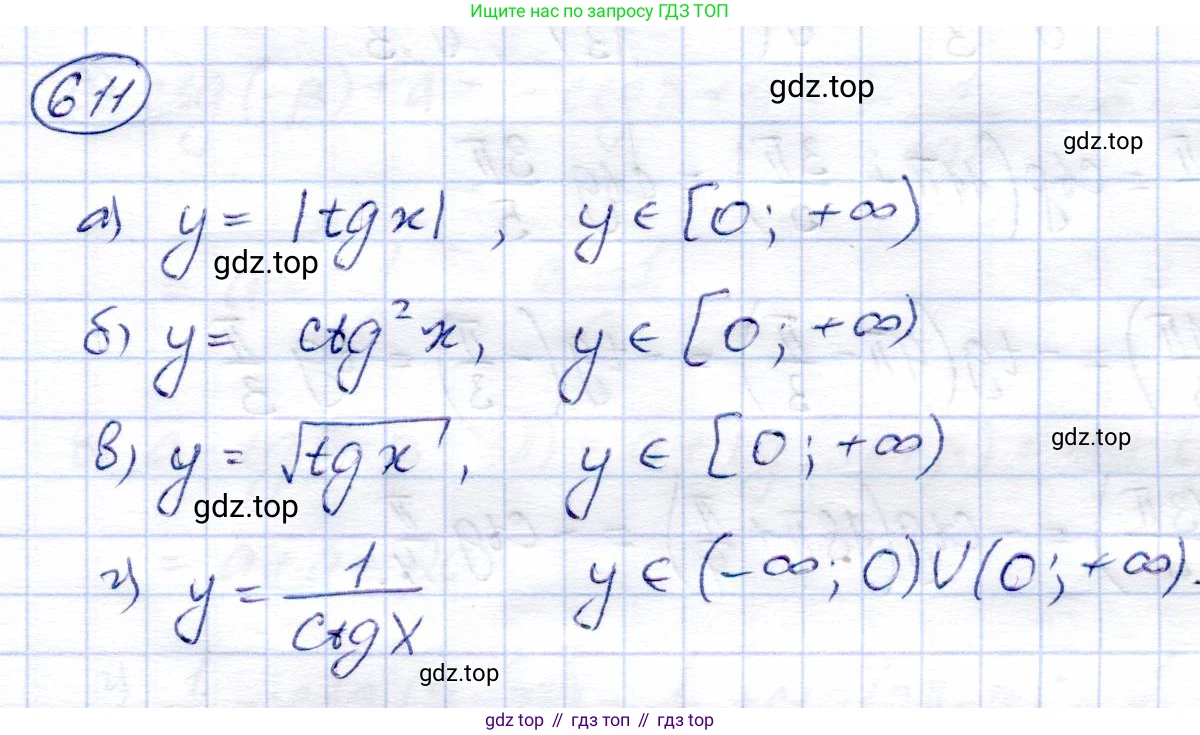 Ищите нас по запросу ГДЗ ТОП
611
gdz.top
gdz.top
а) y = |tg x| , y ∈ [0; +∞)
gdz.top
б) y = ctg² x, y ∈ [0; +∞)
в) y = √tg x , y ∈ [0; +∞)
gdz.top
gdz.top
г) y = 1/ctg x y ∈ (-∞; 0) ∪ (0; +∞).
gdz.top
gdz top // гдз топ // gdz top